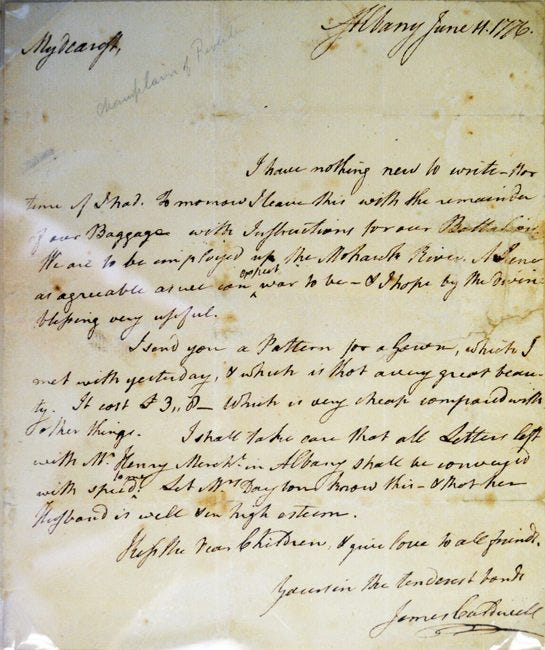 Albany June 11. 1776.
My dearest,
I have nothing new to write - nor
time if I had. To morrow I leave this with the remainder
of our Baggage with Instructions for our Battalion.
We are to be employed up the Mohawk River. A Scene
as agreeable as we can expect war to be - & I hope by the divine
blessing very useful.
I send you a Pattern for a Gown, which I
met with yesterday, & which is thot a very great beau-
ty. It cost £ 3,,8 - which is very cheap compared with
other things. I shall take care that all Letters left
with Mr. Henry Mercht. in Albany shall be conveyed
to me
with speed. Let Mrs Dayton know this - & that her
Husband is well & in high esteem.
Kiss the dear Children, & give love to all friends.
Yours in the tenderest bonds
James Caldwell